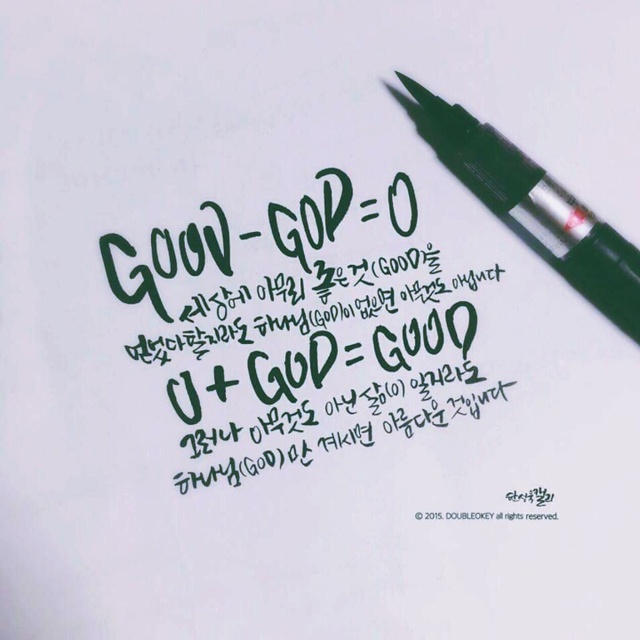 GOOD - GOD = 0
세상에 아무리 좋은것(GOOD)을
얻었다할지라도 하나님(GOD)이 없으면 아무것도 아닙니다
0 + GOD = GOOD
그러나 아무것도 아닌 삶(0)일지라도
하나님(GOD)만 계시면 아름다운 것입니다
© 2015. DOUBLEOKEY all rights reserved.